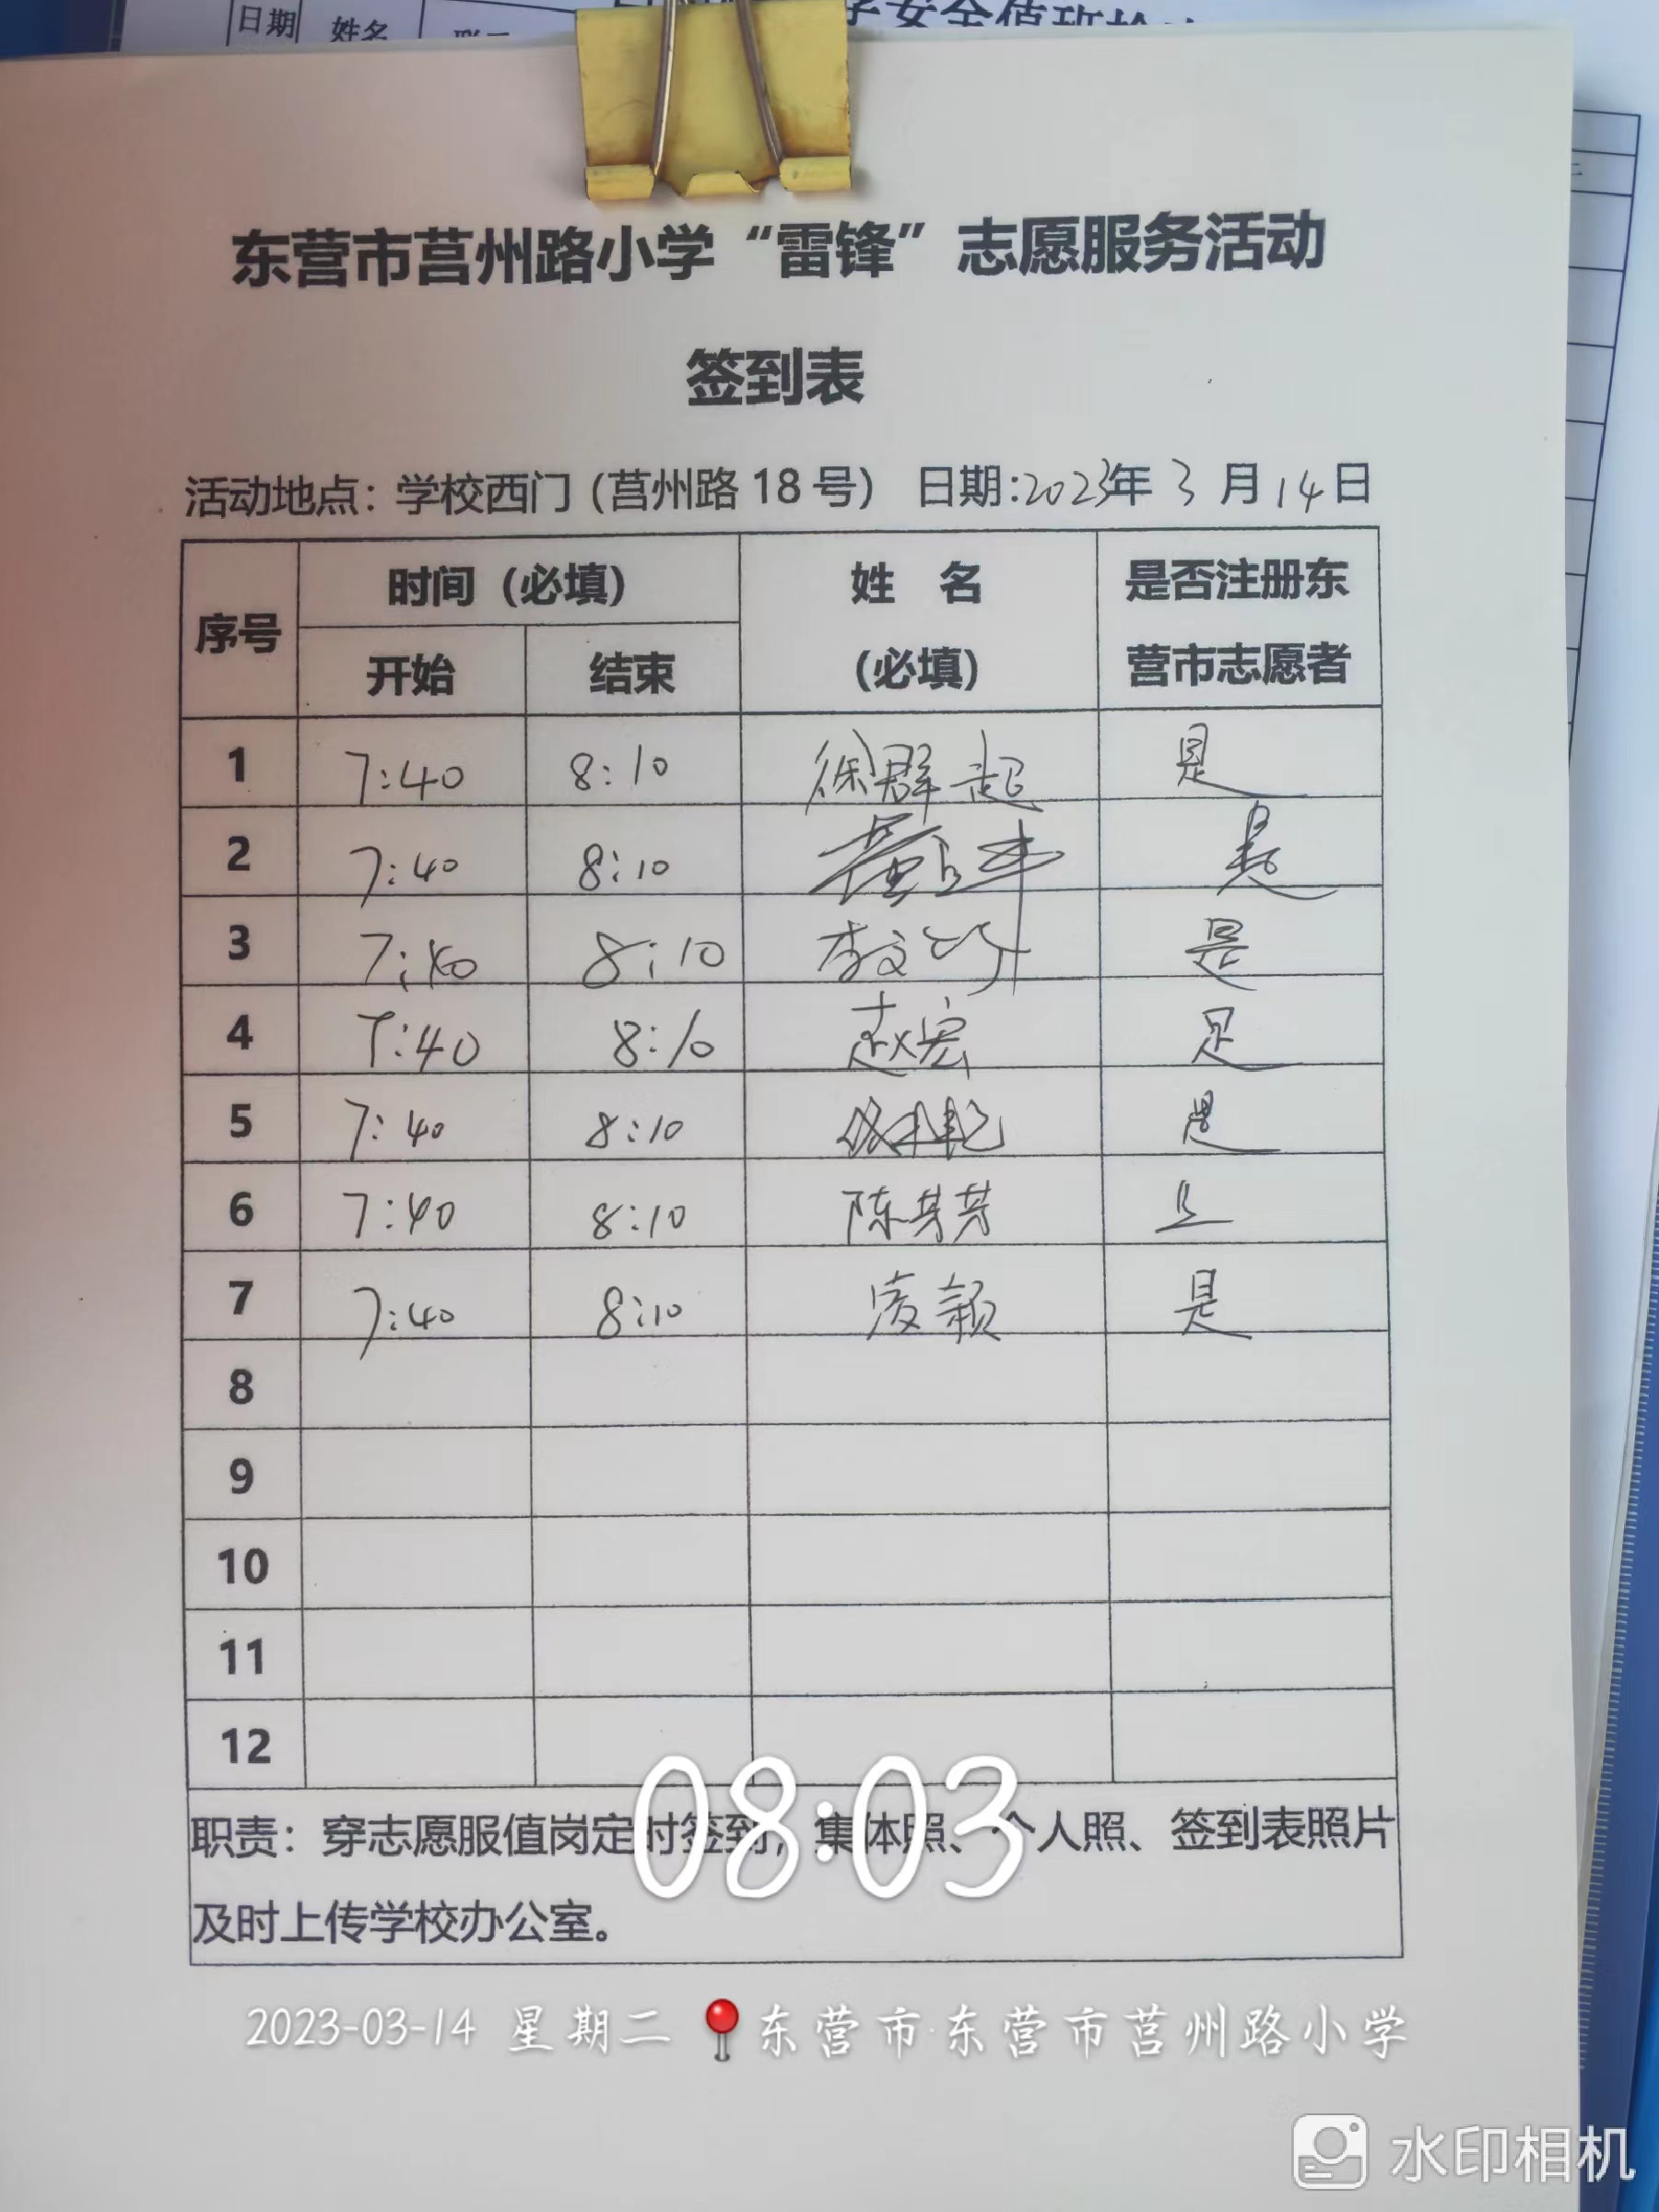 日期 姓名
安全值班
东营市莒州路小学“雷锋”志愿服务活动
签到表
活动地点：学校西门（莒州路18号） 日期:2023年3月14日
序号 时间（必填） 姓 名 是否注册东
开始 结束 （必填） 营市志愿者
1 7:40 8:10 徐群起 是
2 7:40 8:10 是
3 7:40 8:10 李文 是
4 7:40 8:10 赵宏 是
5 7:40 8:10 是
6 7:40 8:10 陈芳芳 是
7 7:40 8:10 凌颖 是
8
9
10
11
12
08:03
职责：穿志愿服值岗定时签到，集体照、个人照、签到表照片
及时上传学校办公室。
2023-03-14 星期二 东营市·东营市莒州路小学
水印相机